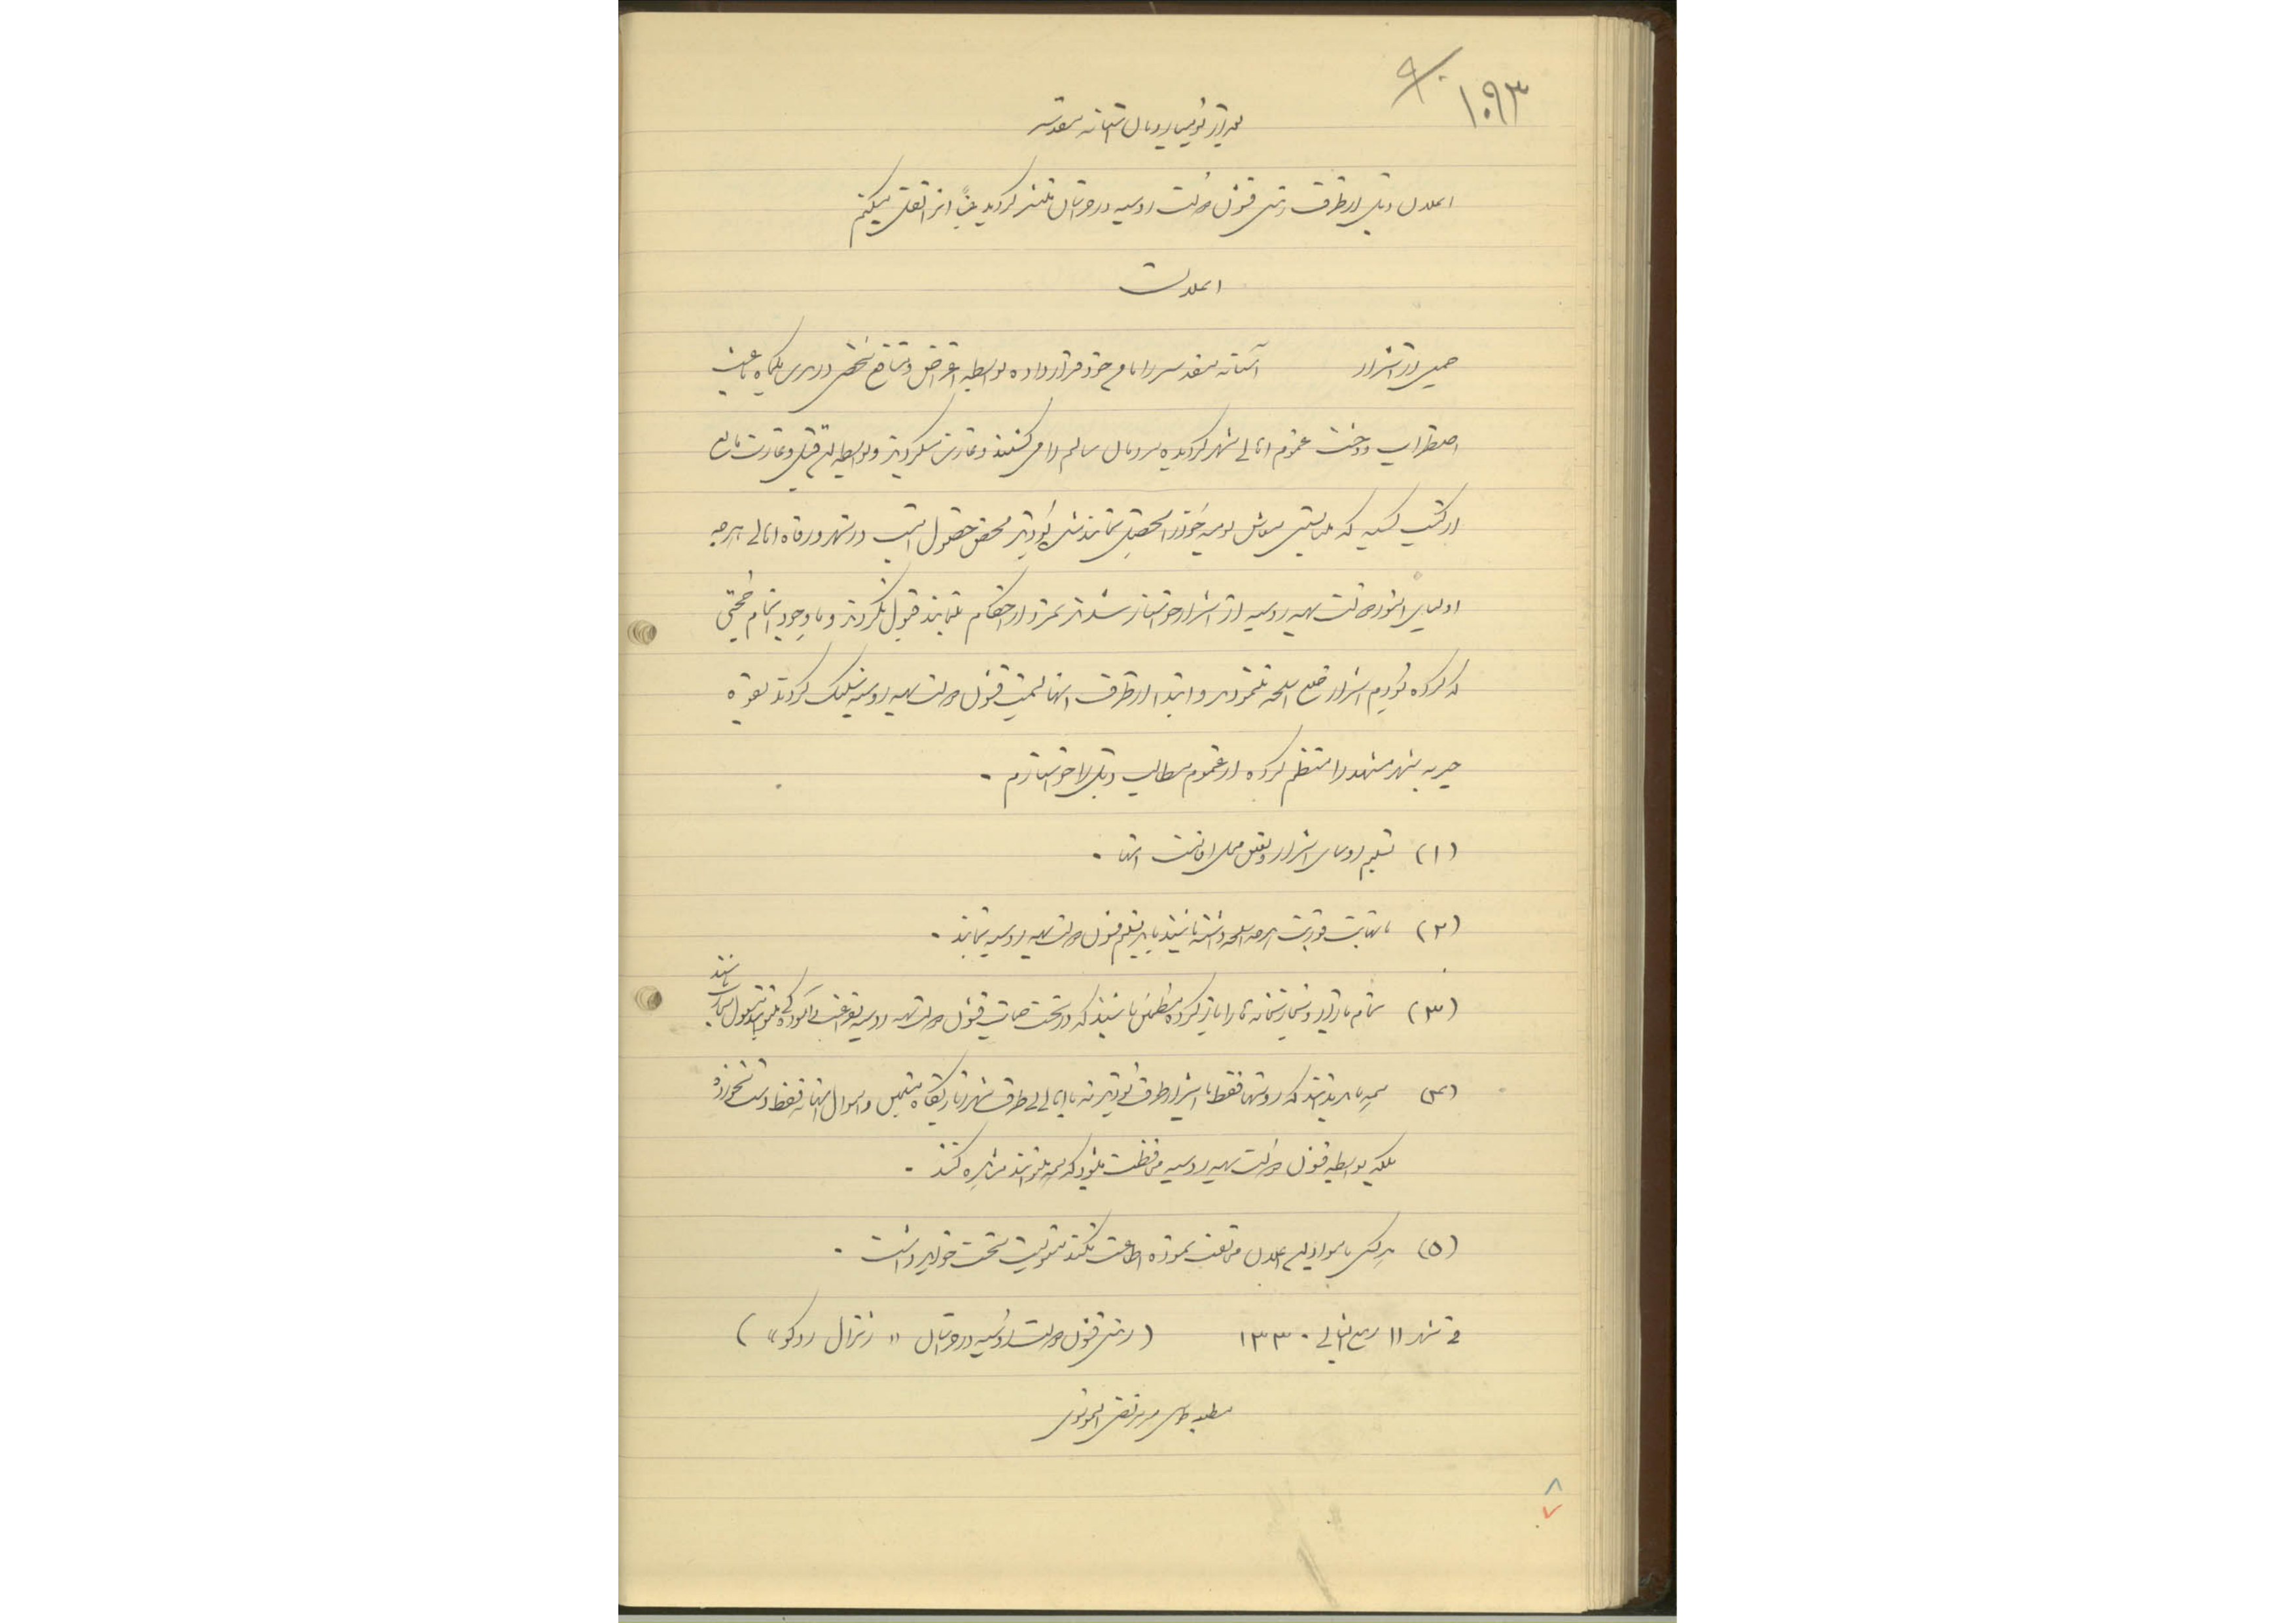 ۱۰۹۳
بعد از توپ بسیار دربان آستانه مقدسه
اعلان ذیل از طرف رئیس قشون دولت روسیه در خراسان منتشر گردید عیناً انرا نقل میکنیم
اعلان
جمعی از اشرار آستانه مقدسه را مامن خود قرار داده بواسطه اغراض و منافع شخصی در مدت یکماه باعث
اضطراب و وحشت عموم اهالی شهر گردیده مردمان سالم را می کشتند و غارت میکردند و بواسطه این قتل و غارت مانع
از کسب کسبه که بایستی معاش یومیه خود را تحصیل نمایند می بودند محض حصول امنیت در شهر و رفاه اهالی هر چه
اولیای امور دولت بهیه روسیه از اشرار خواستار شدند تمرد از احکام ننمایند قبول نکردند و با وجود اتمام حجتی
که کرده بودیم اشرار خلع اسلحه ننمودند و ابتدا از طرف آنها بسمت قشون دولت بهیه روسیه شلیک کردند بقوه
جبریه شهر مشهد را منظم کرده از عموم مطالب ذیل را خواستارم .
(۱) تسلیم روسای اشرار و تعیین محل اقامت آنها .
(۲) بنهایت فوریت هر چه اسلحه داشته باشند باید تسلیم قشون دولت بهیه روسیه نمایند .
(۳) تمام بازار و تجارتخانه ها را باز کرده مطمئن باشند که در تحت حمایت قشون دولت بهیه روسیه بفراغت و آسودگی میتوانند مشغول تجارت باشند
(۴) همه باید بدانند که روسها فقط با اشرار طرف بودند نه با اهالی طرف شهر و بارگاه مقدس و اموال آنها نه فقط دست نخورده
بلکه بواسطه قشون دولت بهیه روسیه محافظت میشود که همه میتوانند مشاهده کنند .
(۵) هر کس با مواد این اعلان مخالفت نموده اطاعت نکند مسئولیت سخت خواهد داشت .
فی شهر ۱۱ ربیع الثانی ۱۳۳۰ (رئیس قشون دولت روسیه در خراسان « ژنرال ردکو »)
مطبعه طوس میر مرتضی الموسوی